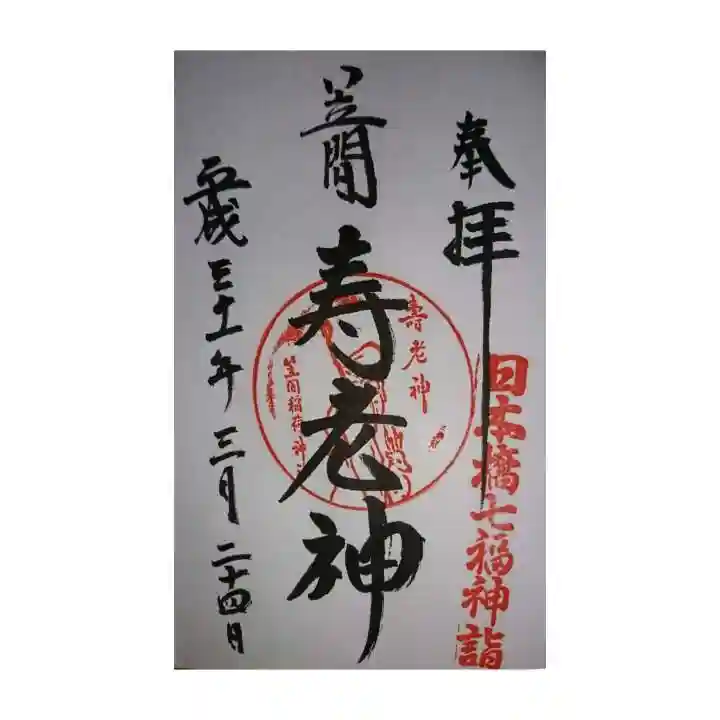 奉拝
日本橋七福神詣
笠間
寿老神
壽老神
笠间稲荷神
平成三十一年三月二十四日